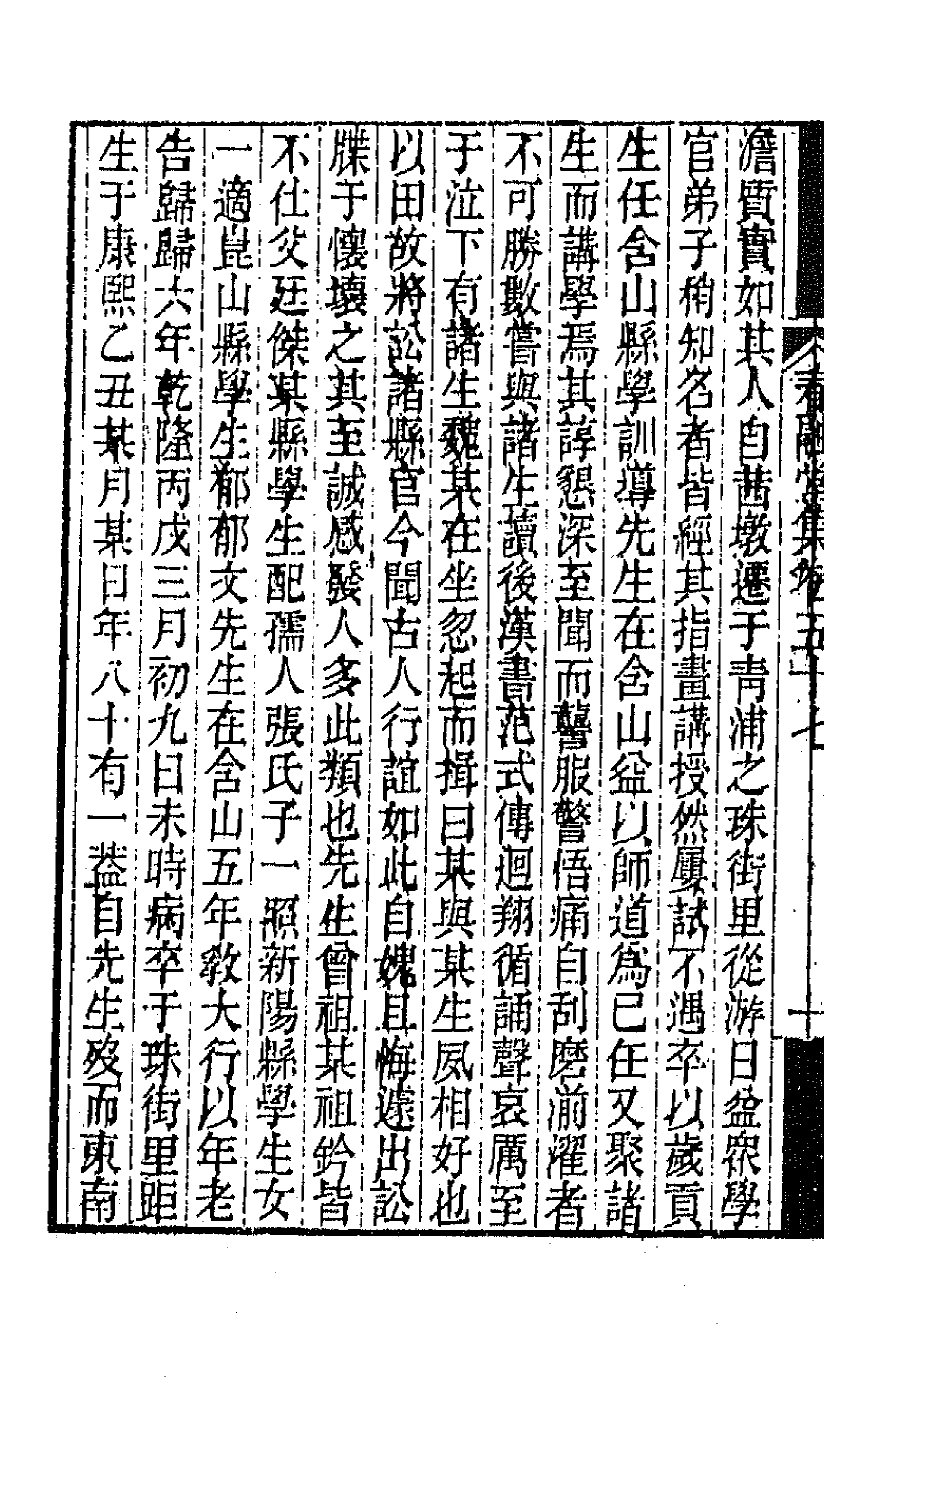 春融堂集卷五十七
十
澹質實如其人自茜墩遷于靑浦之珠街里從游日益衆學
官弟子稍知名者皆經其指畫講授然屢試不遇卒以歲貢
生任含山縣學訓導先生在含山益以師道爲己任又聚諸
生而講學焉其諄懇深至聞而讋服警悟痛自刮磨湔濯者
不可勝數嘗與諸生讀後漢書范式傳迴翔循誦聲哀厲至
于泣下有諸生魏某在坐忽起而揖曰某與某生夙相好也
以田故將訟諸縣官今聞古人行誼如此自媿且悔遽出訟
牒于懷壞之其至誠感發人多此類也先生曾祖某祖鈐皆
不仕父廷傑某縣學生配孺人張氏子一照新陽縣學生女
一適崑山縣學生郁郁文先生在含山五年敎大行以年老
告歸歸六年乾隆丙戌三月初九日未時病卒于珠街里距
生于康熙乙丑某月某日年八十有一葢自先生歿而東南